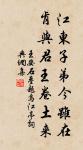 江東子弟今雖在
肯與君王卷土來
王安石疊題烏江亭詞
典調集